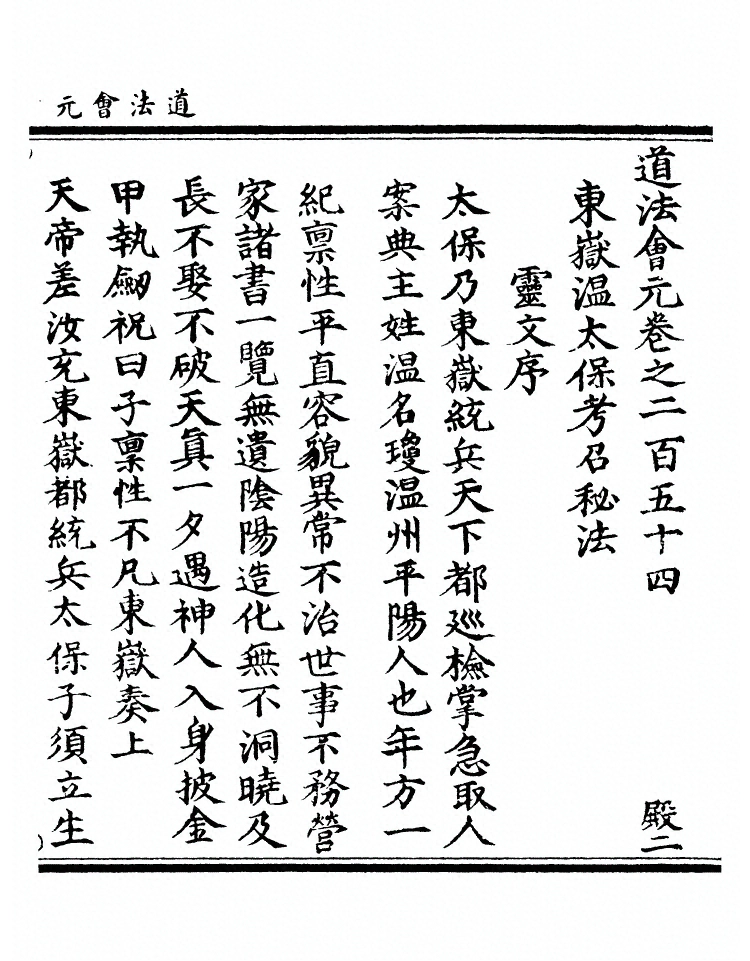 道法會元
道法會元卷之二百五十四 殿二
東嶽温太保考召秘法
靈文序
太保乃東嶽統兵天下都廵檢掌急取人
案典主姓温名瓊温州平陽人也年方一
紀禀性平直容貌異常不治世事不務營
家諸書一覽無遺陰陽造化無不洞曉及
長不娶不破天真一夕遇神人入身披金
甲執劒祝曰子禀性不凡東嶽奏上
天帝差汝充東嶽都統兵太保子須立生